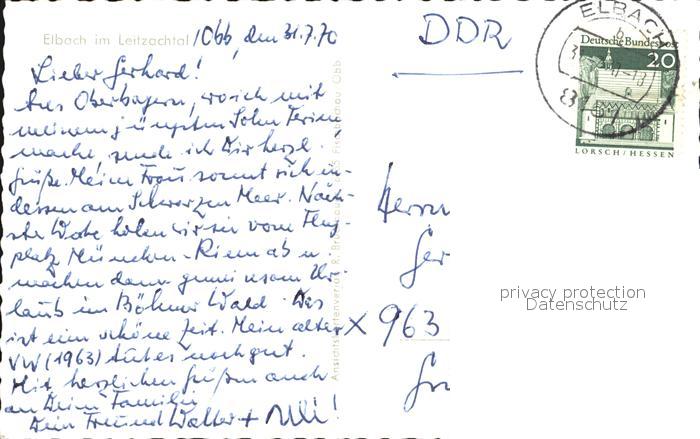 Elbach im Leitzachtal /Obb, den 31.7.70
Lieber Gerhard!
Aus Oberbayern, wo ich mit
meinem jüngsten Sohn Ferien
mache, sende ich Dir herzl.
Grüße. Meine Frau sonnt sich in-
dessen am Schwarzen Meer. Näch-
ste Woche holen wir sie vom Flug-
platz München-Riem ab u.
machen dann gemeinsam Ur-
laub im Böhmer Wald. Das
ist eine schöne Zeit. Mein alter
VW (1963) tut es noch gut.
Mit herzlichen Grüßen auch
an Deine Familie
Dein Freund Walter + Uli!
DDR
Herrn
Ger
X 963
ELBACH
Deutsche Bundespost
20
LORSCH/HESSEN
privacy protection
Datenschutz
Ansichtskartenverlag